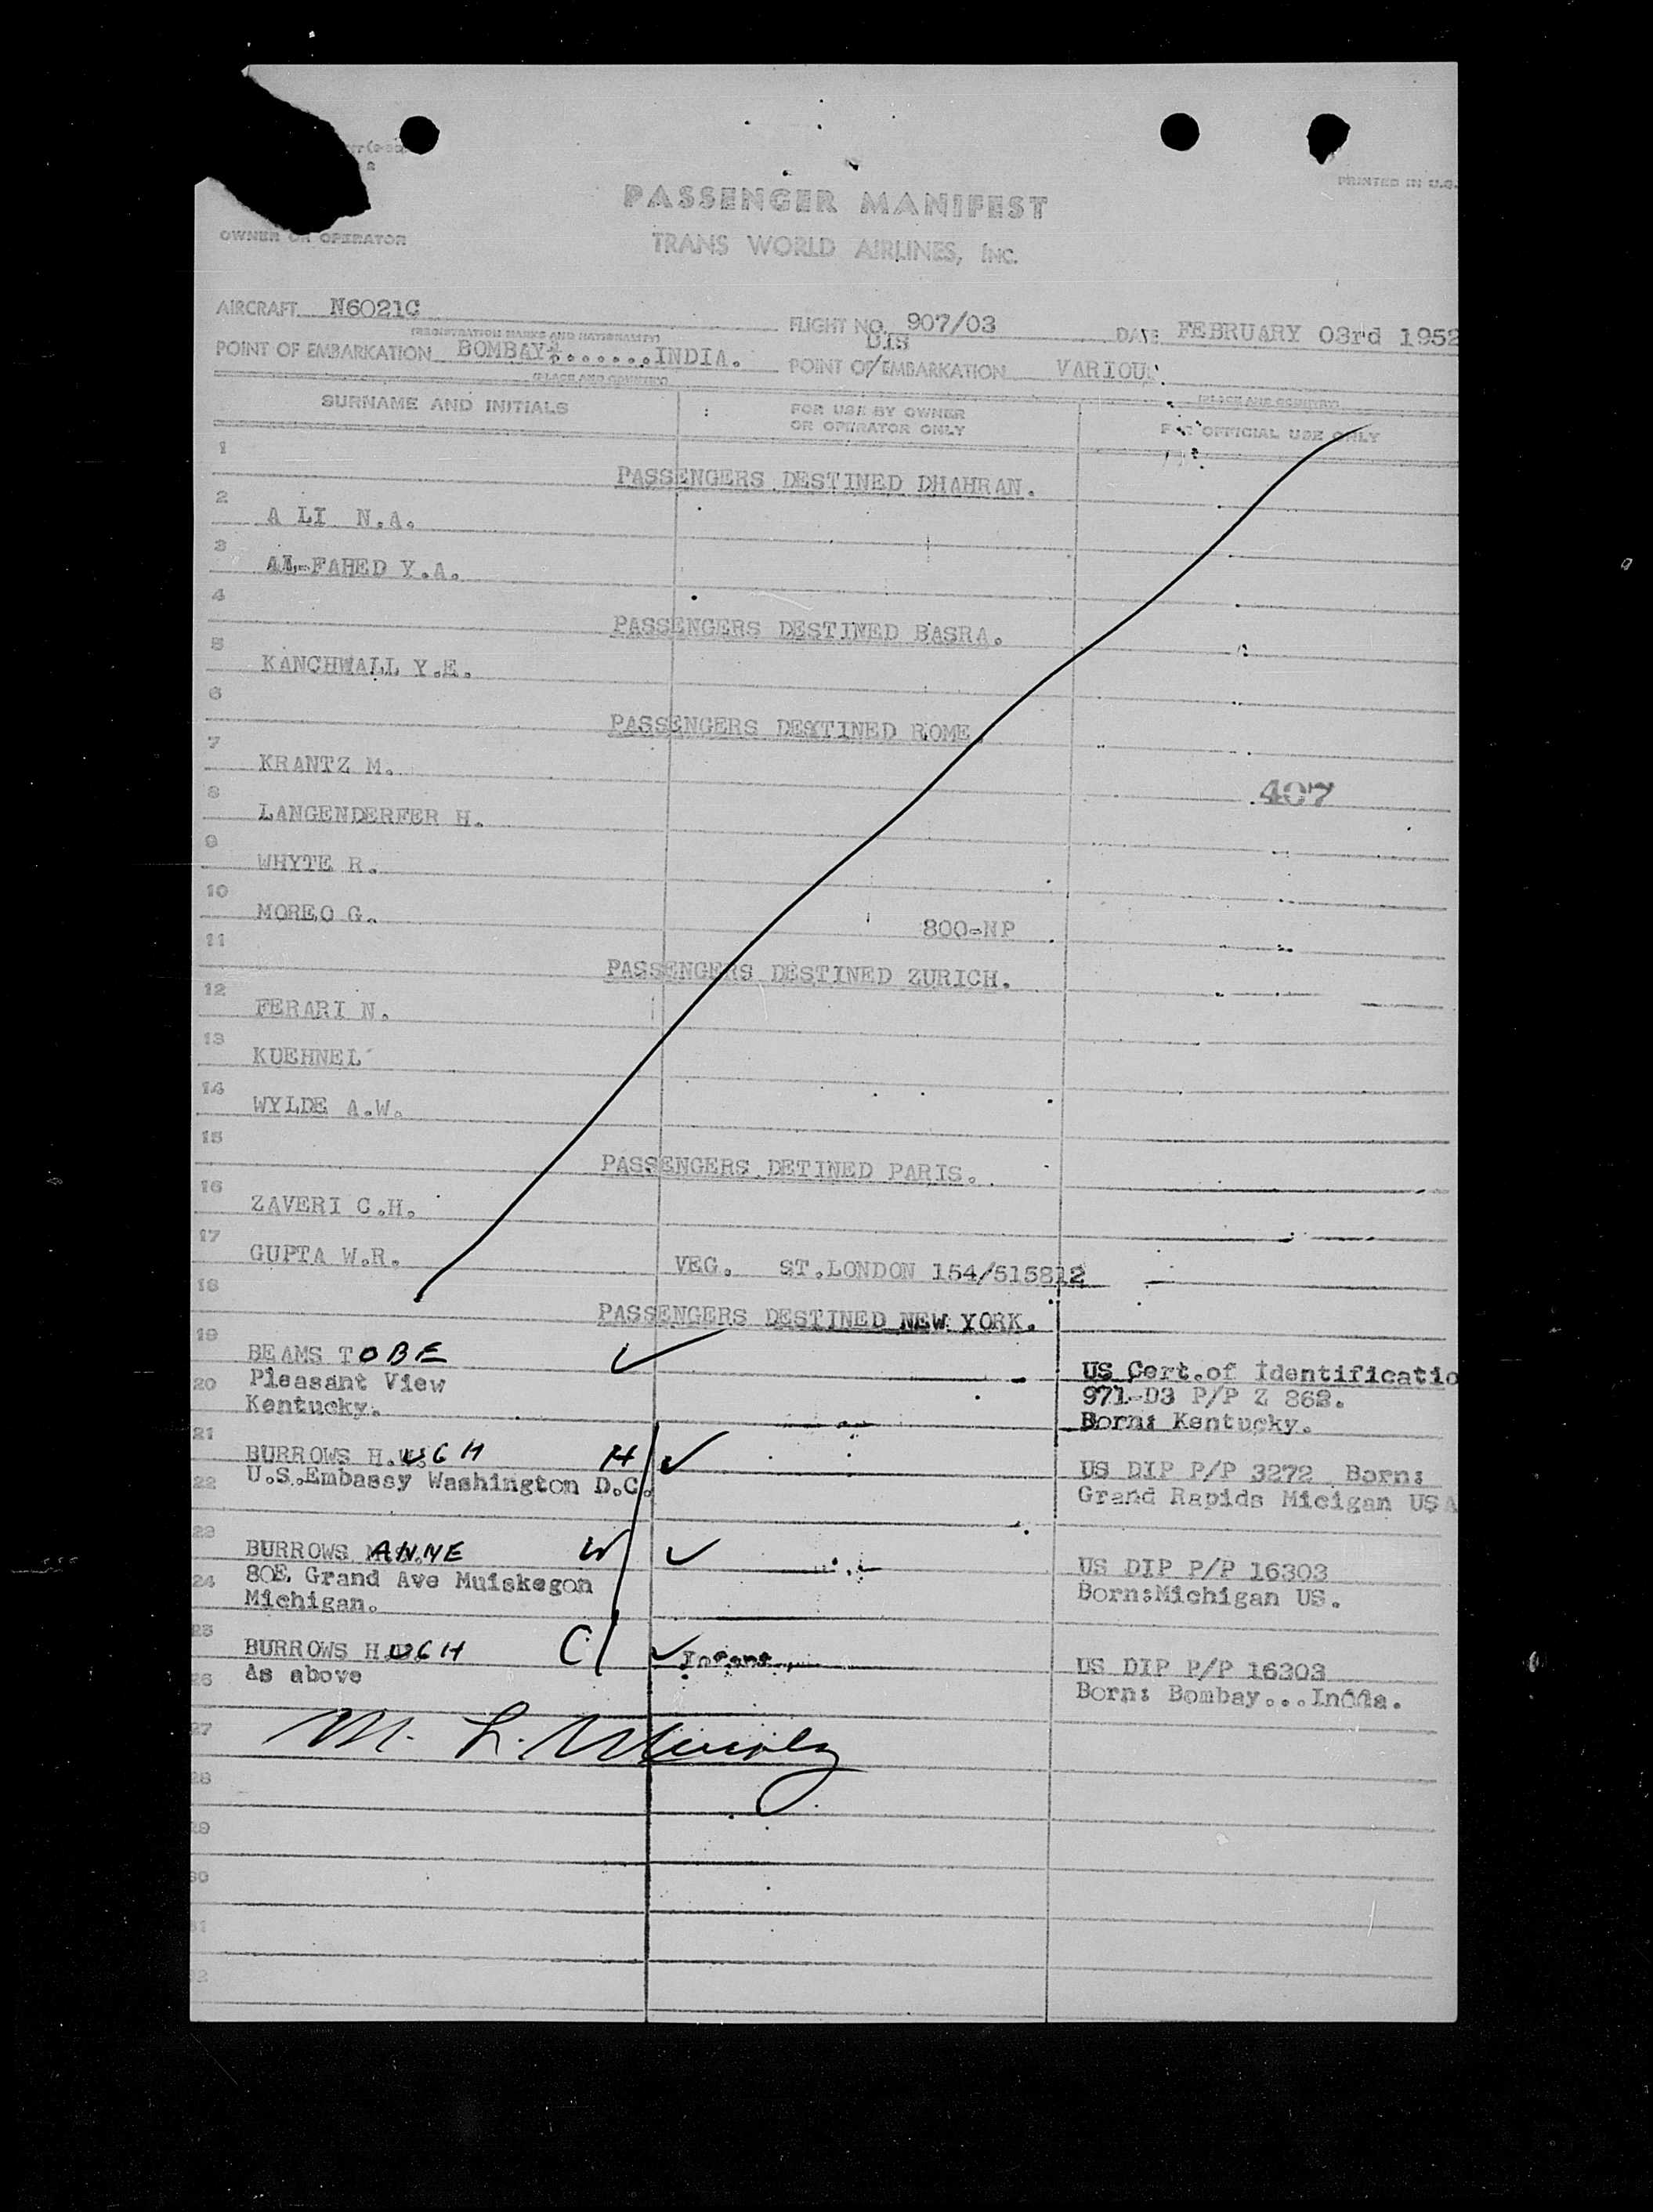 PRINTED IN U.S.
PASSENGER MANIFEST
OWNER OR OPERATOR
TRANS WORLD AIRLINES, INC.
AIRCRAFT N6021C FLIGHT NO. 907/03 DATE FEBRUARY 03rd 1952
(REGISTRATION MARKS AND NATIONALITY) DIS
POINT OF EMBARKATION BOMBAY.......INDIA. POINT OF/EMBARKATION VARIOUS.
(PLACE AND COUNTRY) (PLACE AND COUNTRY)
SURNAME AND INITIALS FOR USE BY OWNER OR OPERATOR ONLY FOR OFFICIAL USE ONLY
1 PASSENGERS DESTINED DHAHRAN.
2 A LI N.A.
3 AL-FAHED Y.A.
4 PASSENGERS DESTINED BASRA.
5 KANCHWALL Y.E.
6 PASSENGERS DESTINED ROME.
7 KRANTZ M.
407
8 LANGENDERFER H.
9 WHYTE R.
10 MOREO G. 800-NP
11 PASSENGERS DESTINED ZURICH.
12 FERARI N.
13 KUEHNEL
14 WYLDE A.W.
15 PASSENGERS DETINED PARIS.
16 ZAVERI C.H.
17 GUPTA W.R. VEG. ST.LONDON 154/515812
18 PASSENGERS DESTINED NEW YORK.
19 BEAMS TOBE ✓ US Cert.of Identificatio
20 Pleasant View 971-D3 P/P Z 868.
Kentucky. Born: Kentucky.
21 BURROWS HUGH H ✓ US DIP P/P 3272 Born:
22 U.S.Embassy Washington D.C. Grand Rapids Micigan USA
23 BURROWS ANNE W ✓ US DIP P/P 16303
24 80E. Grand Ave Muiskegon Born:Michigan US.
Michigan.
25 BURROWS HUGH C ✓ Infant US DIP P/P 16303
26 As above Born: Bombay...India.
27 M. L.
28
29
30
31
32